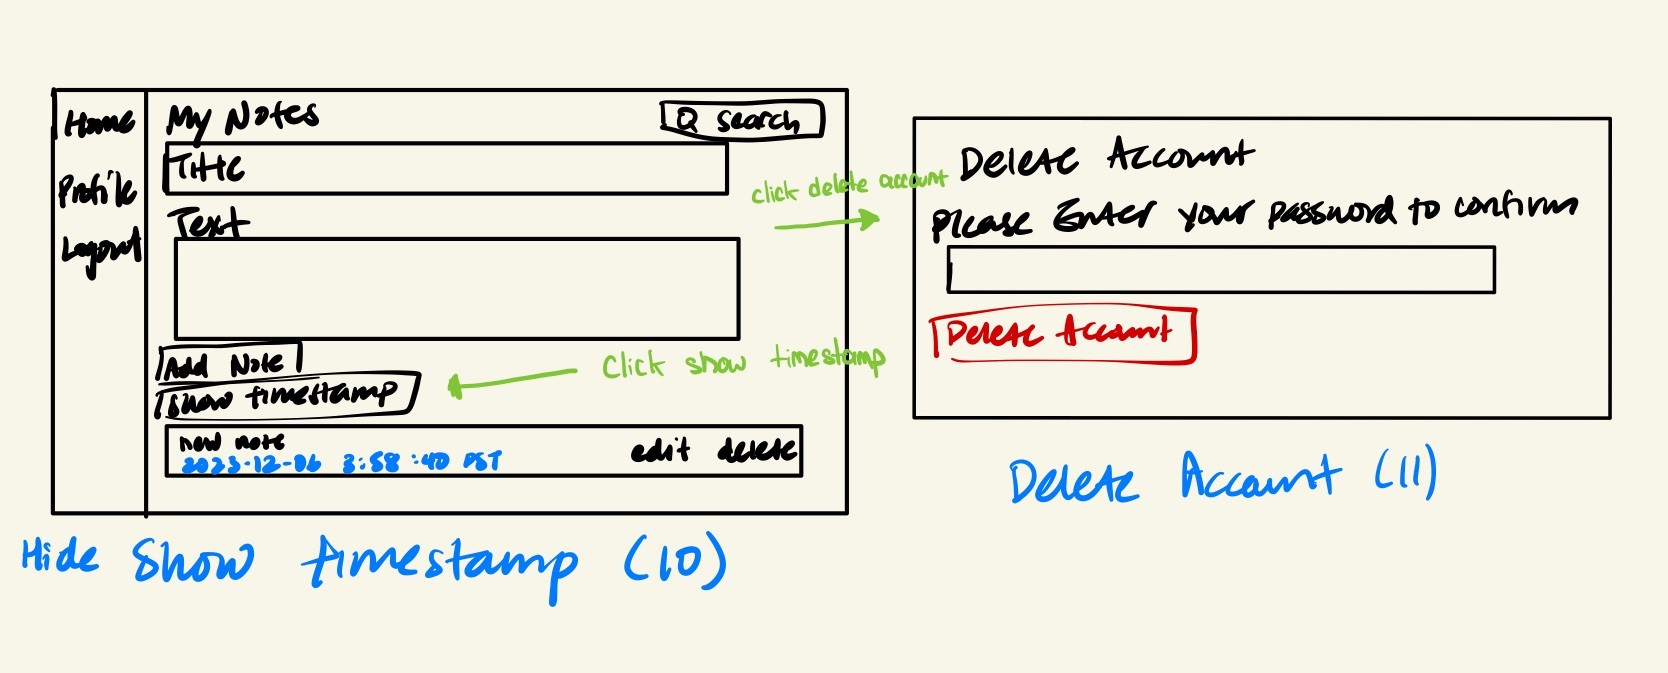 Home
Profile
Logout
My Notes
Q search
Title
Text
Add Note
Show timestamp
new note
2023-12-06 3:58:40 PST
edit delete
Click show timestamp
Hide Show timestamp (10)
click delete account
Delete Account
Please Enter your password to confirm
Delete Account
Delete Account (11)